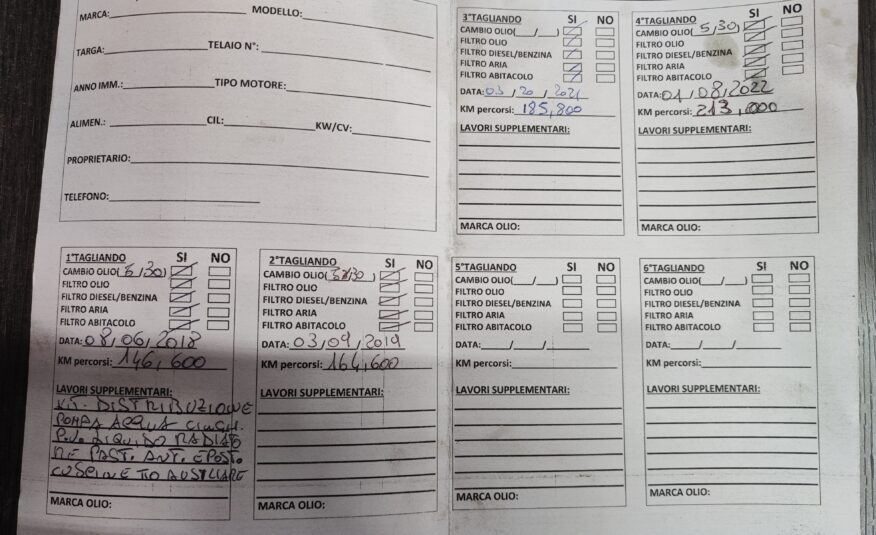 MARCA: MODELLO:
TARGA: TELAIO N°:
ANNO IMM.: TIPO MOTORE:
ALIMEN.: CIL: KW/CV:
PROPRIETARIO:
TELEFONO:
3°TAGLIANDO SI NO
CAMBIO OLIO( / / )
FILTRO OLIO
FILTRO DIESEL/BENZINA
FILTRO ARIA
FILTRO ABITACOLO
DATA: 03, 20, 2021
KM percorsi: 185,800
LAVORI SUPPLEMENTARI:
MARCA OLIO:
4°TAGLIANDO SI NO
CAMBIO OLIO( 5,30 )
FILTRO OLIO
FILTRO DIESEL/BENZINA
FILTRO ARIA
FILTRO ABITACOLO
DATA: 01,08,2022
KM percorsi: 213,000
LAVORI SUPPLEMENTARI:
MARCA OLIO:
1°TAGLIANDO SI NO
CAMBIO OLIO( 5,30 )
FILTRO OLIO
FILTRO DIESEL/BENZINA
FILTRO ARIA
FILTRO ABITACOLO
DATA: 08,06,2018
KM percorsi: 146,600
LAVORI SUPPLEMENTARI:
KIT. DISTRIBUZIONE
POMPA ACQUA
LIQUIDO RADIATO
RE PAST. ANT. E POST.
CUSCINETTO AUSILIARE
MARCA OLIO:
2°TAGLIANDO SI NO
CAMBIO OLIO( )
FILTRO OLIO
FILTRO DIESEL/BENZINA
FILTRO ARIA
FILTRO ABITACOLO
DATA: 03,09,2019
KM percorsi: 164,600
LAVORI SUPPLEMENTARI:
MARCA OLIO:
5°TAGLIANDO SI NO
CAMBIO OLIO( / / )
FILTRO OLIO
FILTRO DIESEL/BENZINA
FILTRO ARIA
FILTRO ABITACOLO
DATA: / /
KM percorsi:
LAVORI SUPPLEMENTARI:
MARCA OLIO:
6°TAGLIANDO SI NO
CAMBIO OLIO( / / )
FILTRO OLIO
FILTRO DIESEL/BENZINA
FILTRO ARIA
FILTRO ABITACOLO
DATA: / /
KM percorsi:
LAVORI SUPPLEMENTARI:
MARCA OLIO: